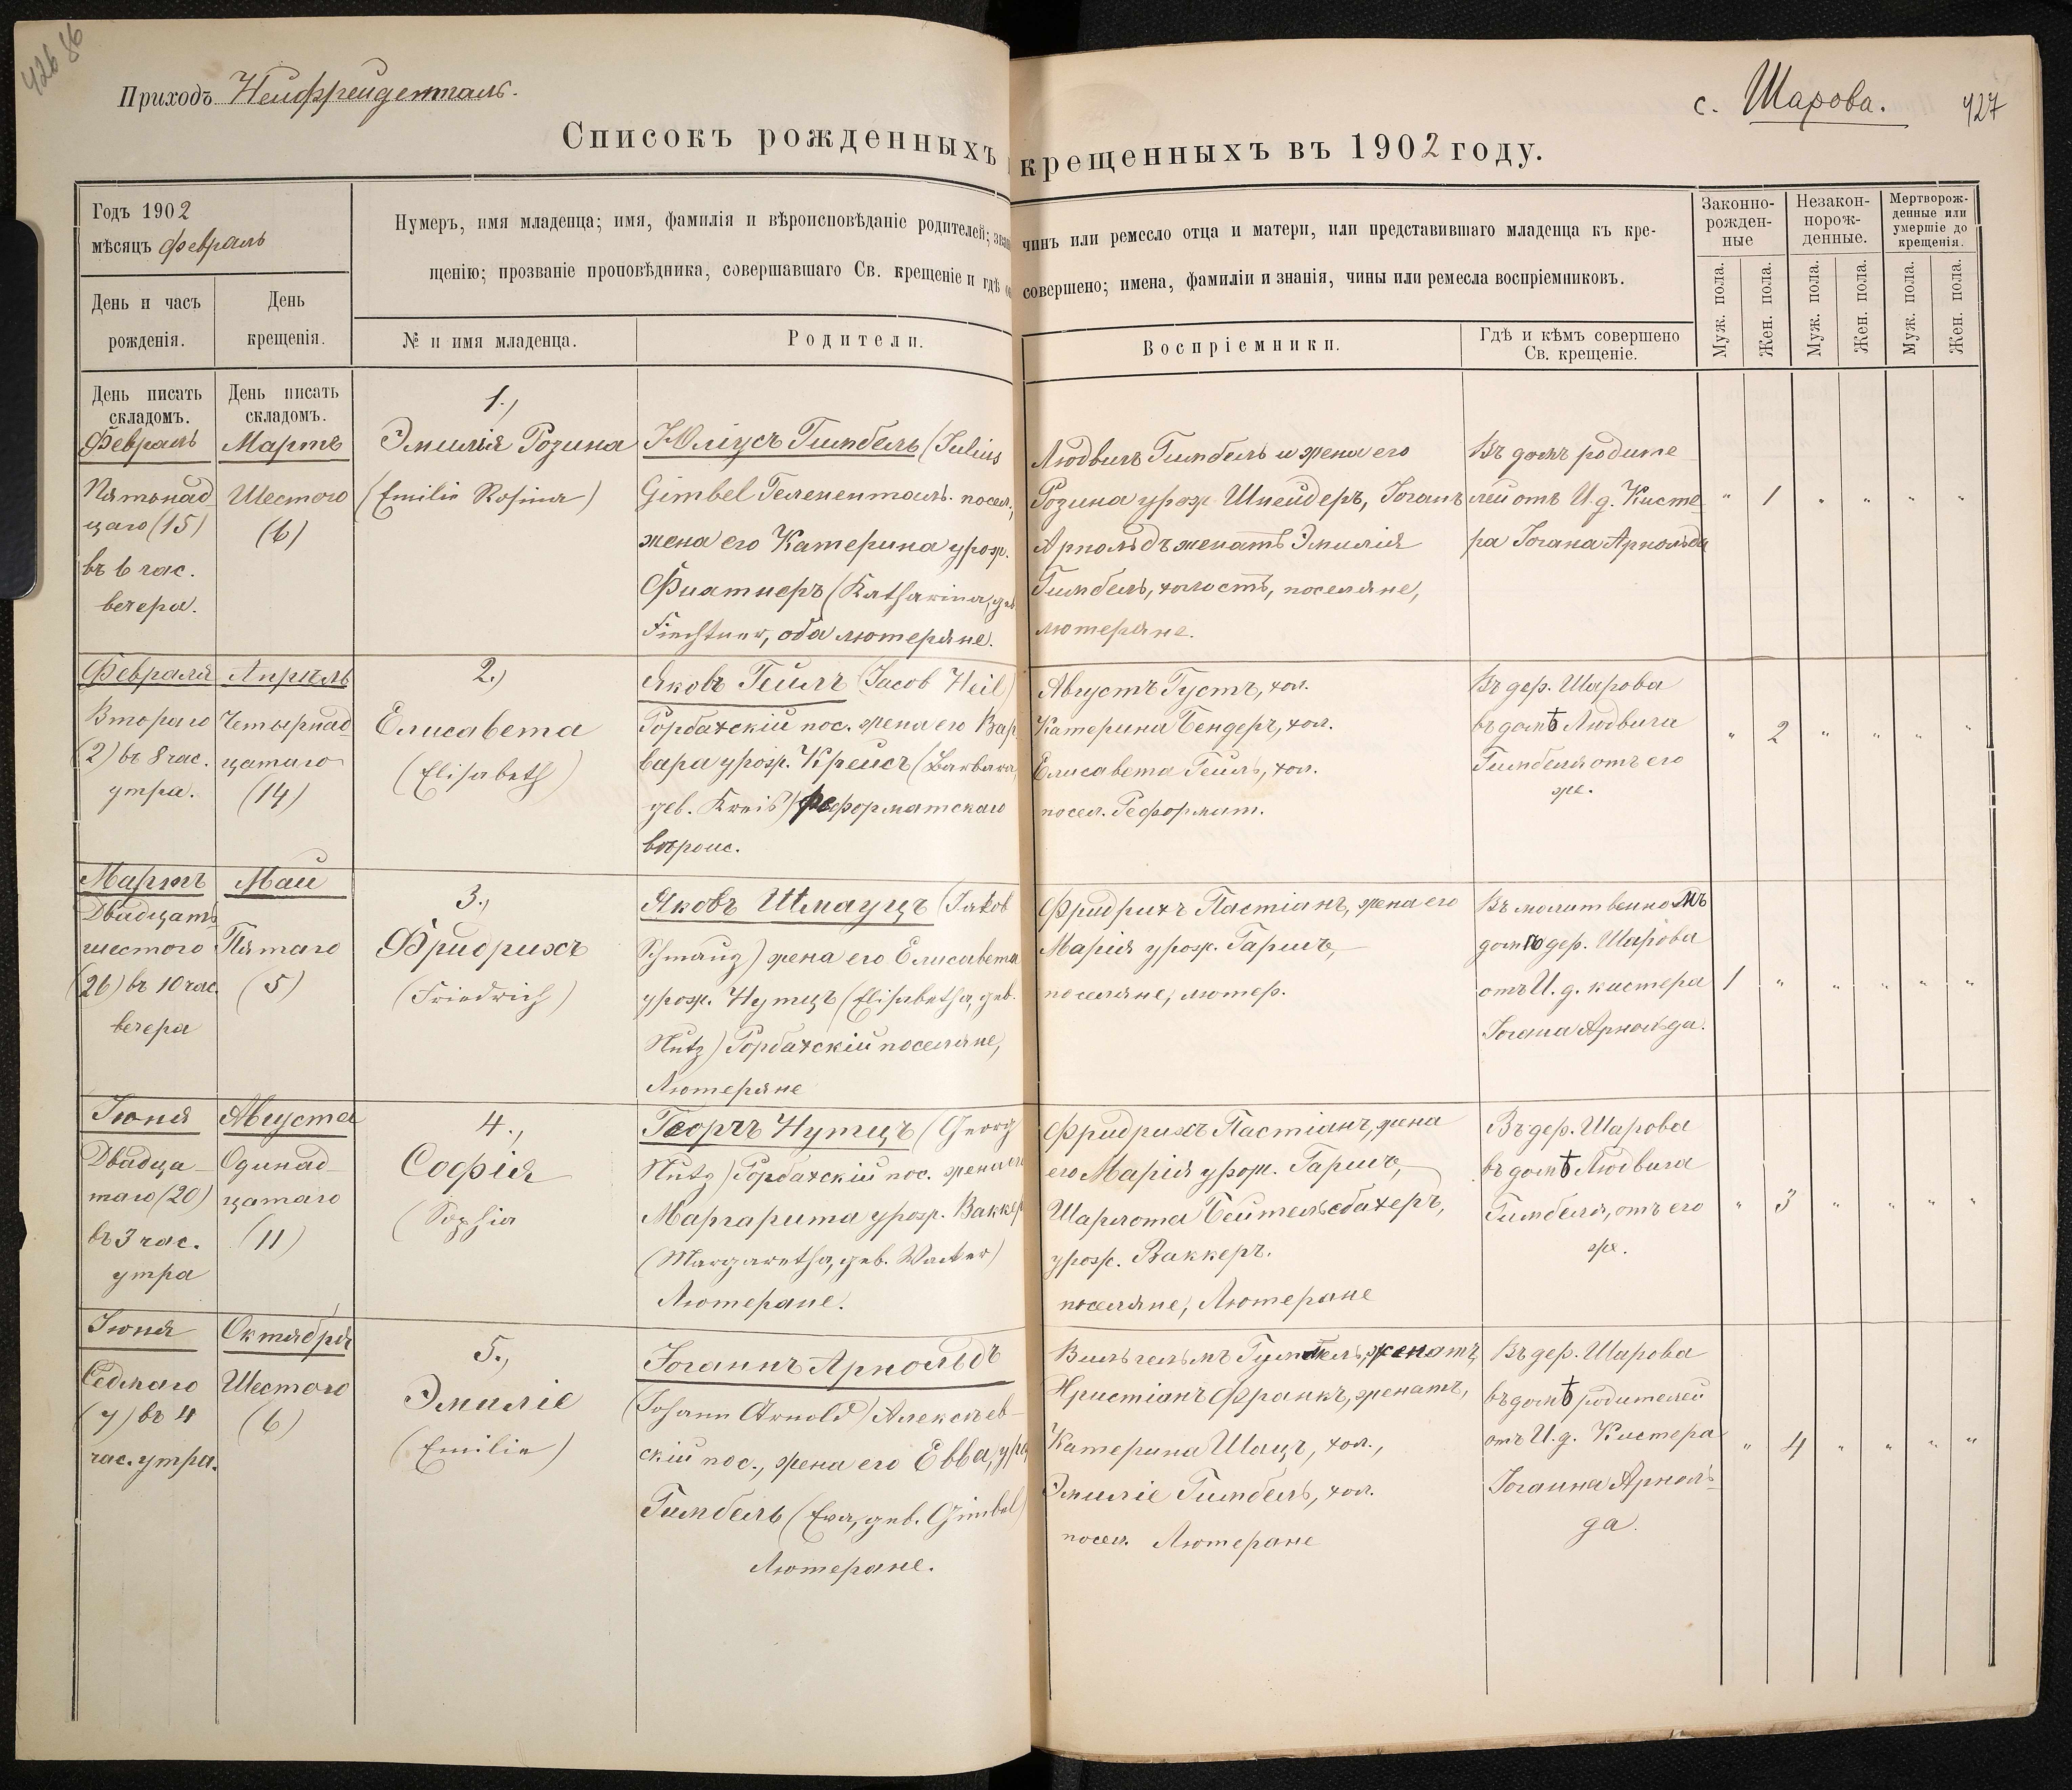 426 86
Приходъ Нейфрейденталь.
с. Шарова.
427
Списокъ рожденныхъ
крещенныхъ въ 1902 году.
Годъ 1902
мѣсяцъ февраль
День и часъ
рожденія.
День
крещенія.
Нумеръ, имя младенца; имя, фамилія и вѣроисповѣданіе родителей;
чинъ или ремесло отца и матери, или представившаго младенца къ кре-
щенію; прозваніе проповѣдника, совершавшаго Св. крещеніе и гдѣ
совершено; имена, фамиліи и знанія, чины или ремесла воспріемниковъ.
№ и имя младенца.
Родители.
Воспріемники.
Гдѣ и кѣмъ совершено
Св. крещеніе.
Законно-
рожден-
ные
Незакон-
норож-
денные.
Мертворож-
денные или
умершіе до
крещенія.
Муж. пола.
Жен. пола.
Муж. пола.
Жен. пола.
Муж. пола.
Жен. пола.
День писать
складомъ.
День писать
складомъ.
Февраль
Пятнад
цаго (15)
въ 6 час.
вечера.
Мартъ
Шестого
(6)
1.,
Эмилія Розина
(Emilie Rosina)
Юліусъ Гимбель (Julius
Gimbel Гелененталь. посел.,
жена его Катерина урож.
Фихтнеръ (Katharina, geb
Fiechtner, оба лютеряне.
Людвигъ Гимбель и жена его
Розина урож. Шнейдеръ, Іоганъ
Арнольдъ женатъ Эмилія
Гимбель, холостъ, поселяне,
лютеряне.
Въ домѣ родите
лей отъ И. д. Кисте
ра Іогана Арнольда
" 1 " " " "
Февраля
Второго
(2) въ 8 час.
утра.
Апрѣль
Четырнад
цатаго
(14)
2.)
Елисавета
(Elisabeth)
Яковъ Гейлъ (Jacob Heil)
Горбахскій пос. жена его Вар
вара урож. Крейсъ (Barbara,
geb. Kreis) реформатскаго
вѣроис.
Августъ Густъ, хол.
Катерина Бендеръ, хол.
Елисавета Гейль, хол.
посел. Реформат.
Въ дер. Шарова
въ домѣ Людвига
Гимбеля отъ его
же.
" 2 " " " "
Мартъ
Двадцать
шестого
(26) въ 10 час.
вечера
Май
Пятаго
(5)
3.,
Фридрихъ
(Friedrich)
Яковъ Шмауцъ (Jakob
Schmauz) жена его Елисавета
урож. Нутцъ (Elisabetha, geb.
Nutz) Горбахскій поселяне,
Лютеряне
Фридрихъ Пастіанъ, жена его
Марія урож. Гаришъ,
поселяне, лютер.
Въ молитвенномъ
домѣ дер. Шарова
отъ И. д. кистера
Іогана Арнольда.
1 " " " " "
Іюня
Двадца
таго (20)
въ 3 час.
утра
Августа
Одинад
цатаго
(11)
4.,
Софія
(Sophia
Георгъ Нутцъ (Georg
Nutz) Горбахскій пос. жена его
Маргарита урож. Ваккер
(Margaretha, geb. Wacker)
Лютеране.
Фридрихъ Пастіанъ, жена
его Марія урож. Гаришъ,
Шарлота Бейтельсбахеръ,
урож. Ваккеръ.
поселяне, Лютеране
Въ дер. Шарова
въ домѣ Людвига
Гимбеля, отъ его
же.
" 3 " " " "
Іюня
Седмаго
(7) въ 4
час. утра.
Октября
Шестого
(6)
5.,
Эмиліе
(Emilie)
Іоганнъ Арнольдъ
(Johann Arnold) Алексѣев-
скій пос., жена его Евва, уро
Гимбель (Eva, geb. Gimbel)
Лютеране.
Вильгельмъ Гимбель, женатъ,
Христіанъ Франкъ, женатъ,
Катерина Шацъ, хол.,
Эмиліе Гимбель, хол.
посел. Лютеране
Въ дер. Шарова
въ домѣ родителей
отъ И. д. Кистера
Іоганна Арноль-
да.
" 4 " " " "